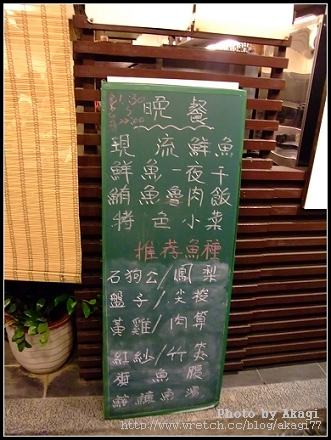 晚餐
現流鮮魚
鮮魚一夜干
鮪魚魯肉飯
特色小菜
推荐魚種
石狗公/鳳梨
盤子/尖梭
黃雞/肉算
紅紗/竹
魚
魚湯
Photo by Akagi
www.wretch.cc/blog/akagi77